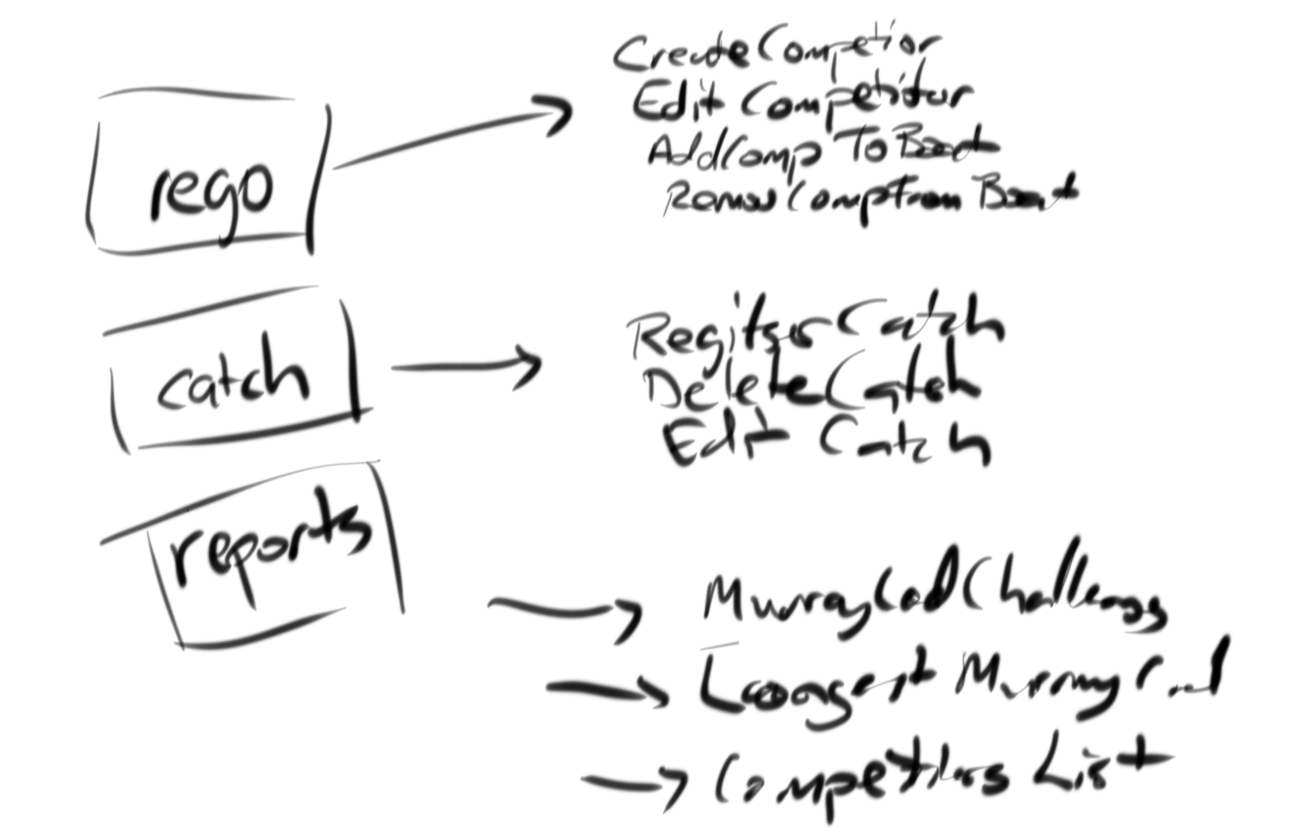 rego
CreateCompetior
Edit Competitor
AddComp To Boat
Remov Comp From Boat
catch
RegitserCatch
DeleteCatch
Edit Catch
reports
MurrayCodChallenge
Longest Murray Cod
Competitors List